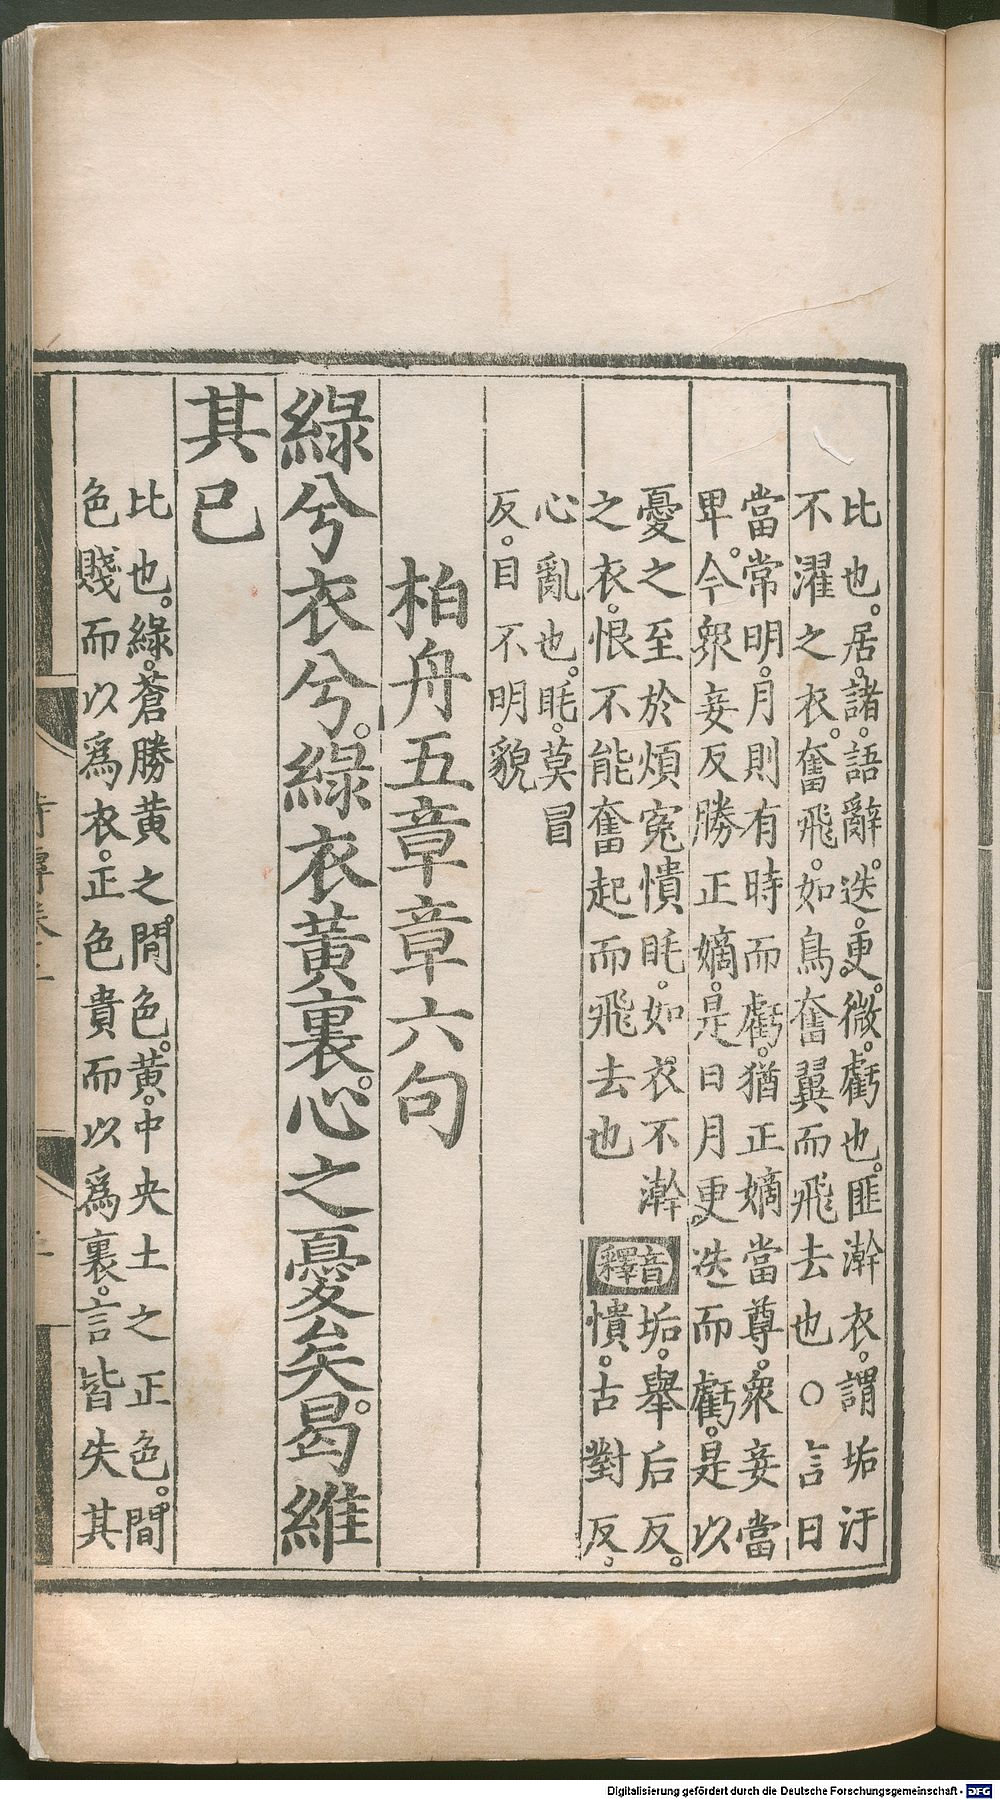 比也。居。諸。語辭。迭。更。微。虧也。匪澣衣。謂垢汙
不濯之衣。奮飛。如鳥奮翼而飛去也○言日
當常明。月則有時而虧。猶正嫡當尊。衆妾當
卑。今衆妾反勝正嫡。是日月更迭而虧。是以
憂之至於煩寃憒眊。如衣不澣
之衣。恨不能奮起而飛去也
音釋
垢。舉后反。
憒。古對反。
心亂也。眊。莫冒
反。目不明貌
柏舟五章章六句
綠兮衣兮。綠衣黃裏。心之憂矣。曷維
其已
比也。綠。蒼勝黃之閒色。黃。中央土之正色。間
色賤而以爲衣。正色貴而以爲裏。言皆失其
Digitalisierung gefördert durch die Deutsche Forschungsgemeinschaft - DFG